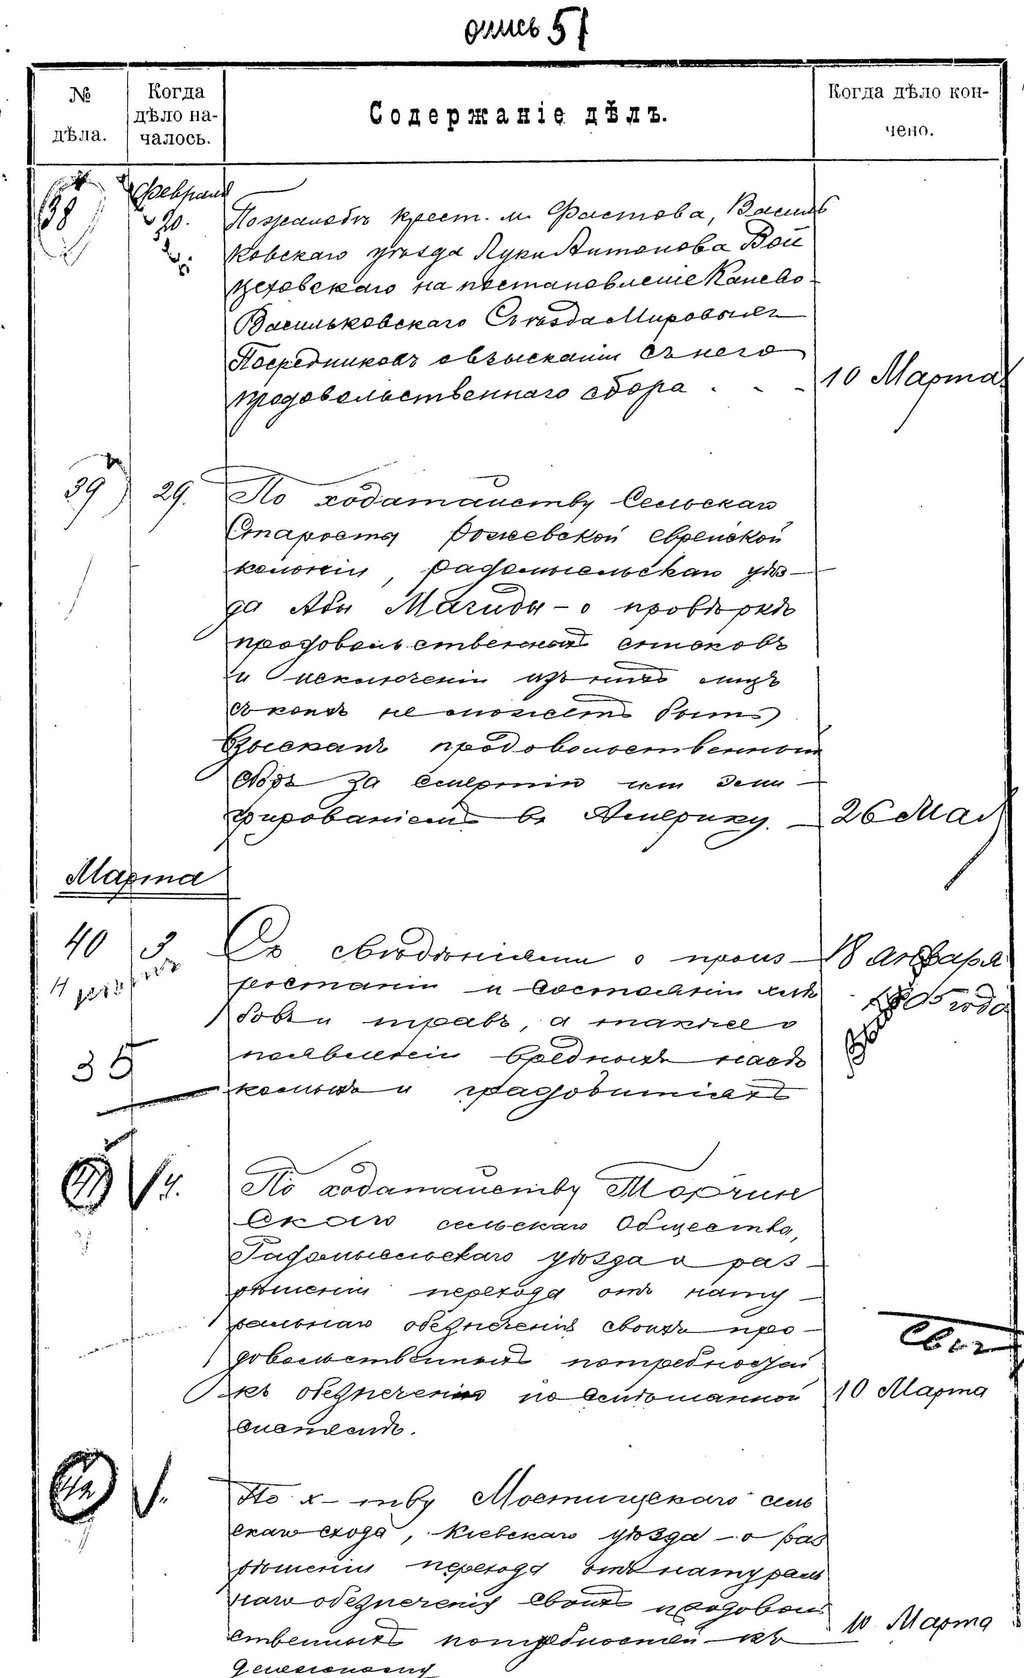 опись 51
№ дѣла.
Когда дѣло началось.
Содержаніе дѣлъ.
Когда дѣло кончено.
38
Февраля
20.
По жалобѣ крест. м. Фастова, Василь
ковскаго уѣзда Луки Антонова Вой
цеховскаго на постановленіе Канево-
Васильковскаго Съѣзда Мировыхъ
Посредниковъ о взысканіи съ него
продовольственнаго сбора
10 Марта
39
29.
По ходатайству Сельскаго
Старосты Рожевской еврейской
колоніи, Радомысльскаго уѣз-
да Абы Магиды - о провѣркѣ
продовольственныхъ списковъ
и исключеніи изъ нихъ лицъ
съ коихъ не можетъ быть
взысканъ продовольственный
сборъ за смертію или эми-
грированіемъ въ Америку.
26 Мая
Марта
40
3
Съ свѣдѣніями о произ-
ростаніи и состояніи хлѣ
бовъ и травъ, а также о
появленіи вредныхъ насѣ
комыхъ и градобитіяхъ
18 Января
1905 года
35
41
4.
По ходатайству Торчин
скаго сельскаго Общества,
Радомысльскаго уѣзда о раз-
рѣшеніи перехода отъ нату-
ральнаго обезпеченія своихъ про-
довольственныхъ потребностей
къ обезпеченію по смѣшанной
системѣ.
10 Марта
42
По х-тву Мостищскаго сель
скаго схода, Кіевскаго уѣзда - о раз
рѣшеніи перехода отъ натураль
наго обезпеченія своихъ продоволь
ственныхъ потребностей къ
денежному
10 Марта